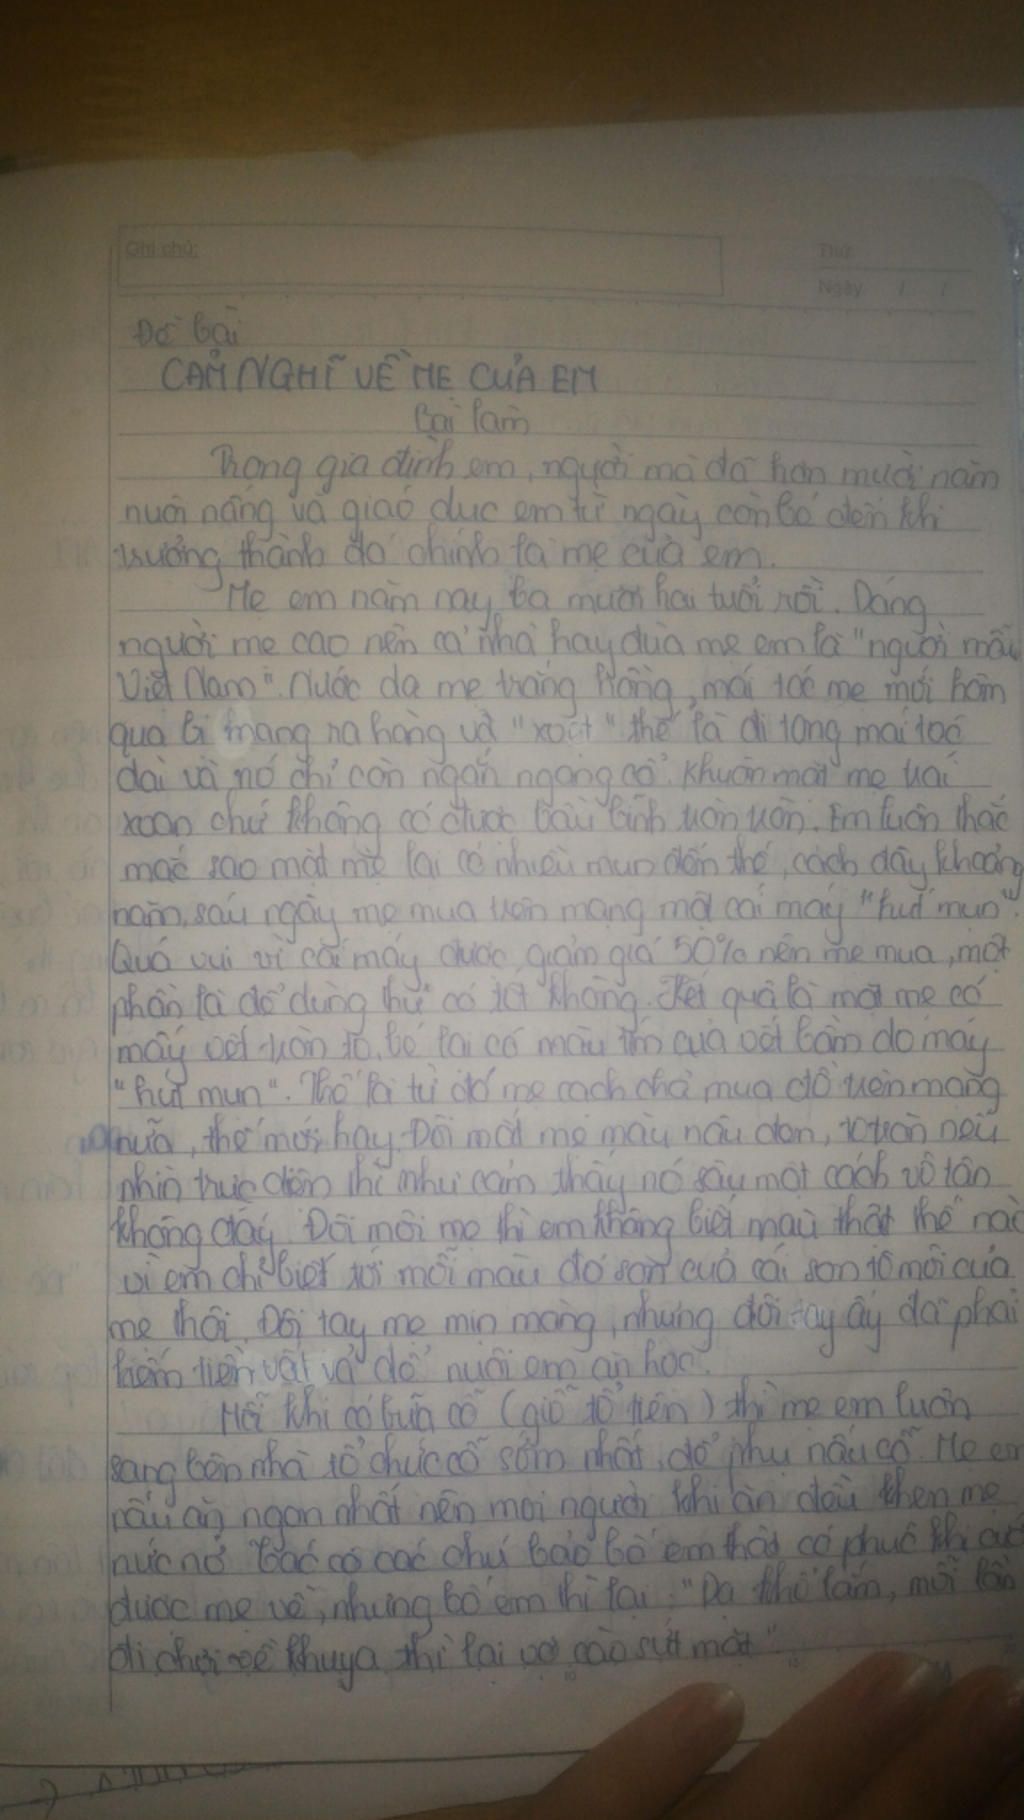 Ghi chú:
Thứ
Ngày / /
Đề bài
CẢM NGHĨ VỀ MẸ CỦA EM
Bài làm
Trong gia đình em, người mà đã hơn mười năm
nuôi nấng và giáo dục em từ ngày còn bé đến khi
trưởng thành đó chính là mẹ của em.
Mẹ em năm nay ba mươi hai tuổi rồi. Dáng
người mẹ cao nên cả nhà hay đùa mẹ em là "người mẫu
Việt Nam". Nước da mẹ trắng hồng, mái tóc mẹ mới hôm
qua bị mang ra hàng và "xoẹt" thế là đi tong mái tóc
dài và nó chỉ còn ngắn ngang cổ. Khuôn mặt mẹ trái
xoan chứ không có được bầu bĩnh tròn tròn. Em luôn thắc
mắc sao mặt mẹ lại có nhiều mụn đến thế, cách đây khoảng
năm, sáu ngày mẹ mua trên mạng một cái máy "hút mụn".
Quá vui vì cái máy được giảm giá 50% nên mẹ mua, một
phần là để dùng thử có tốt không. Kết quả là mặt mẹ có
mấy vết tròn to, bé lại có màu tím của vết bầm do máy
"hút mụn". Thế là từ đó mẹ cạch chả mua đồ trên mạng
nữa, thế mới hay. Đôi mắt mẹ màu nâu đen, to tròn nếu
nhìn trực diện thì như cảm thấy nó sâu một cách vô tận
không đáy. Đôi môi mẹ thì em không biết màu thật thế nào
vì em chỉ biết tới mỗi màu đỏ son của cái son tô môi của
mẹ thôi. Đôi tay mẹ mịn màng, nhưng đôi tay ấy đã phải
kiếm tiền vất vả để nuôi em ăn học.
Mỗi khi có bữa cỗ (giỗ tổ tiên) thì mẹ em luôn
sang bên nhà tổ chức cỗ sớm nhất, để phụ nấu cỗ. Mẹ em
nấu ăn ngon nhất nên mọi người khi ăn đều khen mẹ
nức nở. Bác cô các chú bảo bố em thật có phúc khi cưới
được mẹ về, nhưng bố em thì lại: "Dạ khổ lắm, mỗi lần
đi chơi về khuya thì lại vợ cào sứt mặt"